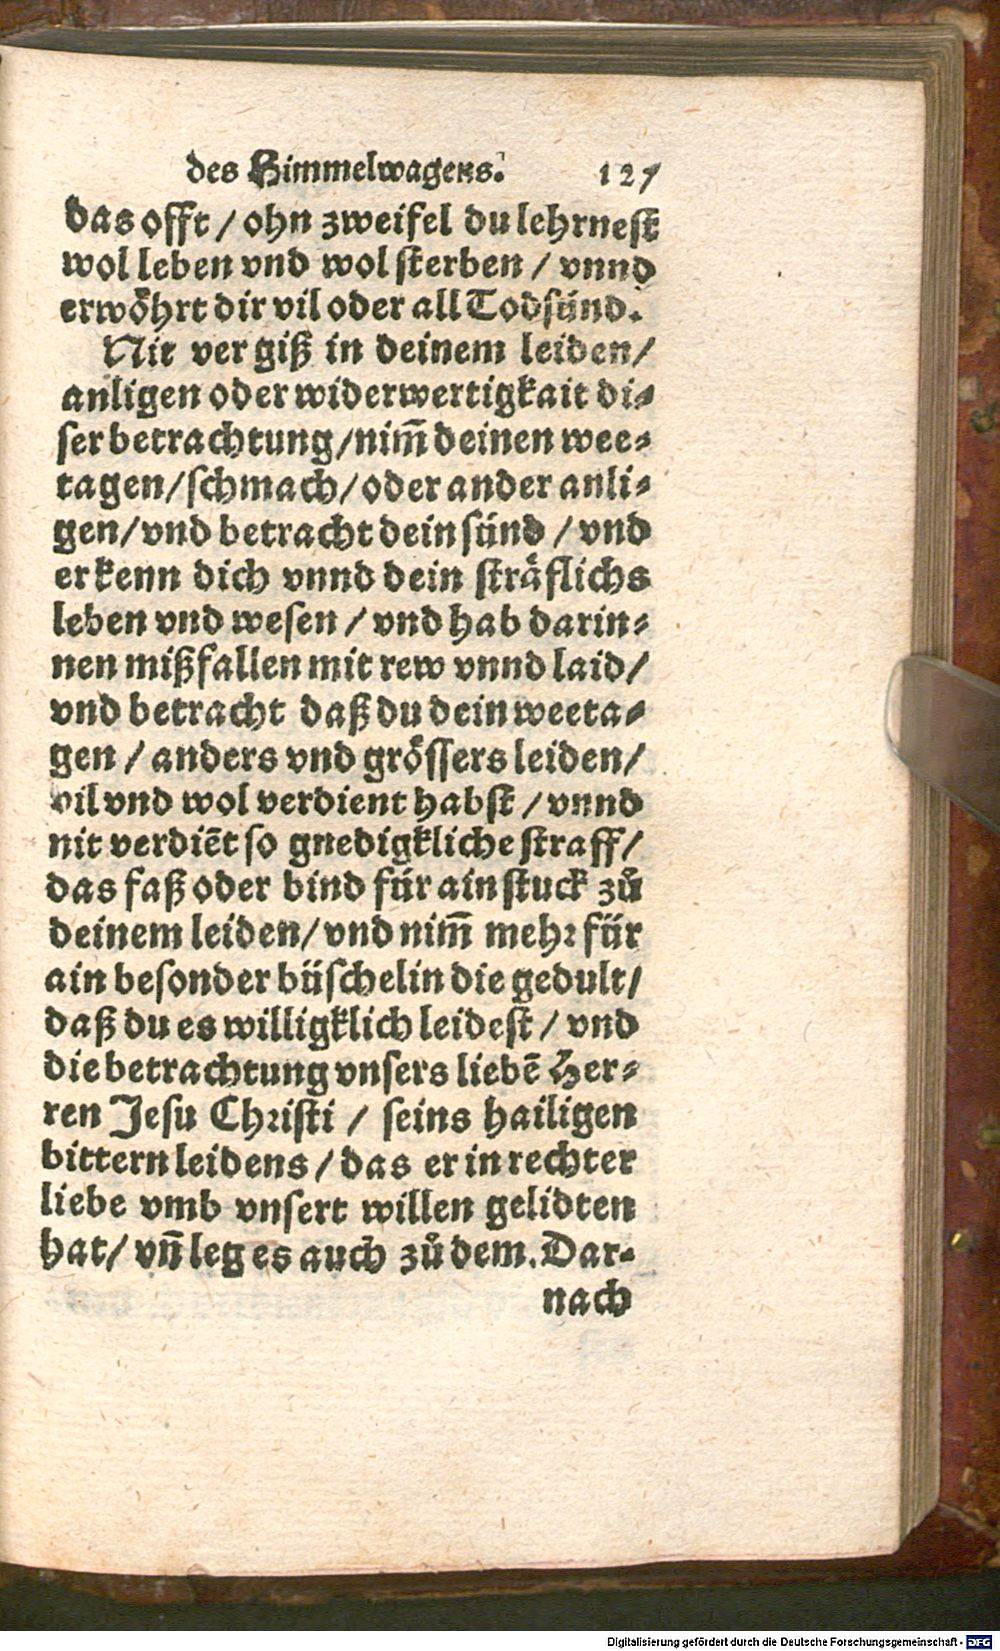 des Himmelwagens. 127
das offt / ohn zweifel du lehrnest
wol leben vnd wol sterben / vnnd
erwöhrt dir vil oder all Todsünd.
Nit vergiß in deinem leiden /
anligen oder widerwertigkait di⸗
ser betrachtung / nim̃ deinen wee⸗
tagen / schmach / oder ander anli⸗
gen / vnd betracht dein sünd / vnd
erkenn dich vnnd dein sträflichs
leben vnd wesen / vnd hab darin⸗
nen mißfallen mit rew vnnd laid /
vnd betracht daß du dein weeta⸗
gen / anders vnd grössers leiden /
vil vnd wol verdient habst / vnnd
nit verdiẽt so gnedigkliche straff /
das faß oder bind für ain stuck zů
deinem leiden / vnd nim̃ mehr für
ain besonder büschelin die gedult /
daß du es willigklich leidest / vnd
die betrachtung vnsers liebẽ Her⸗
ren Jesu Christi / seins hailigen
bittern leidens / das er in rechter
liebe vmb vnsert willen gelidten
hat / vñ leg es auch zů dem. Dar⸗
nach
Digitalisierung gefördert durch die Deutsche Forschungsgemeinschaft - DFG